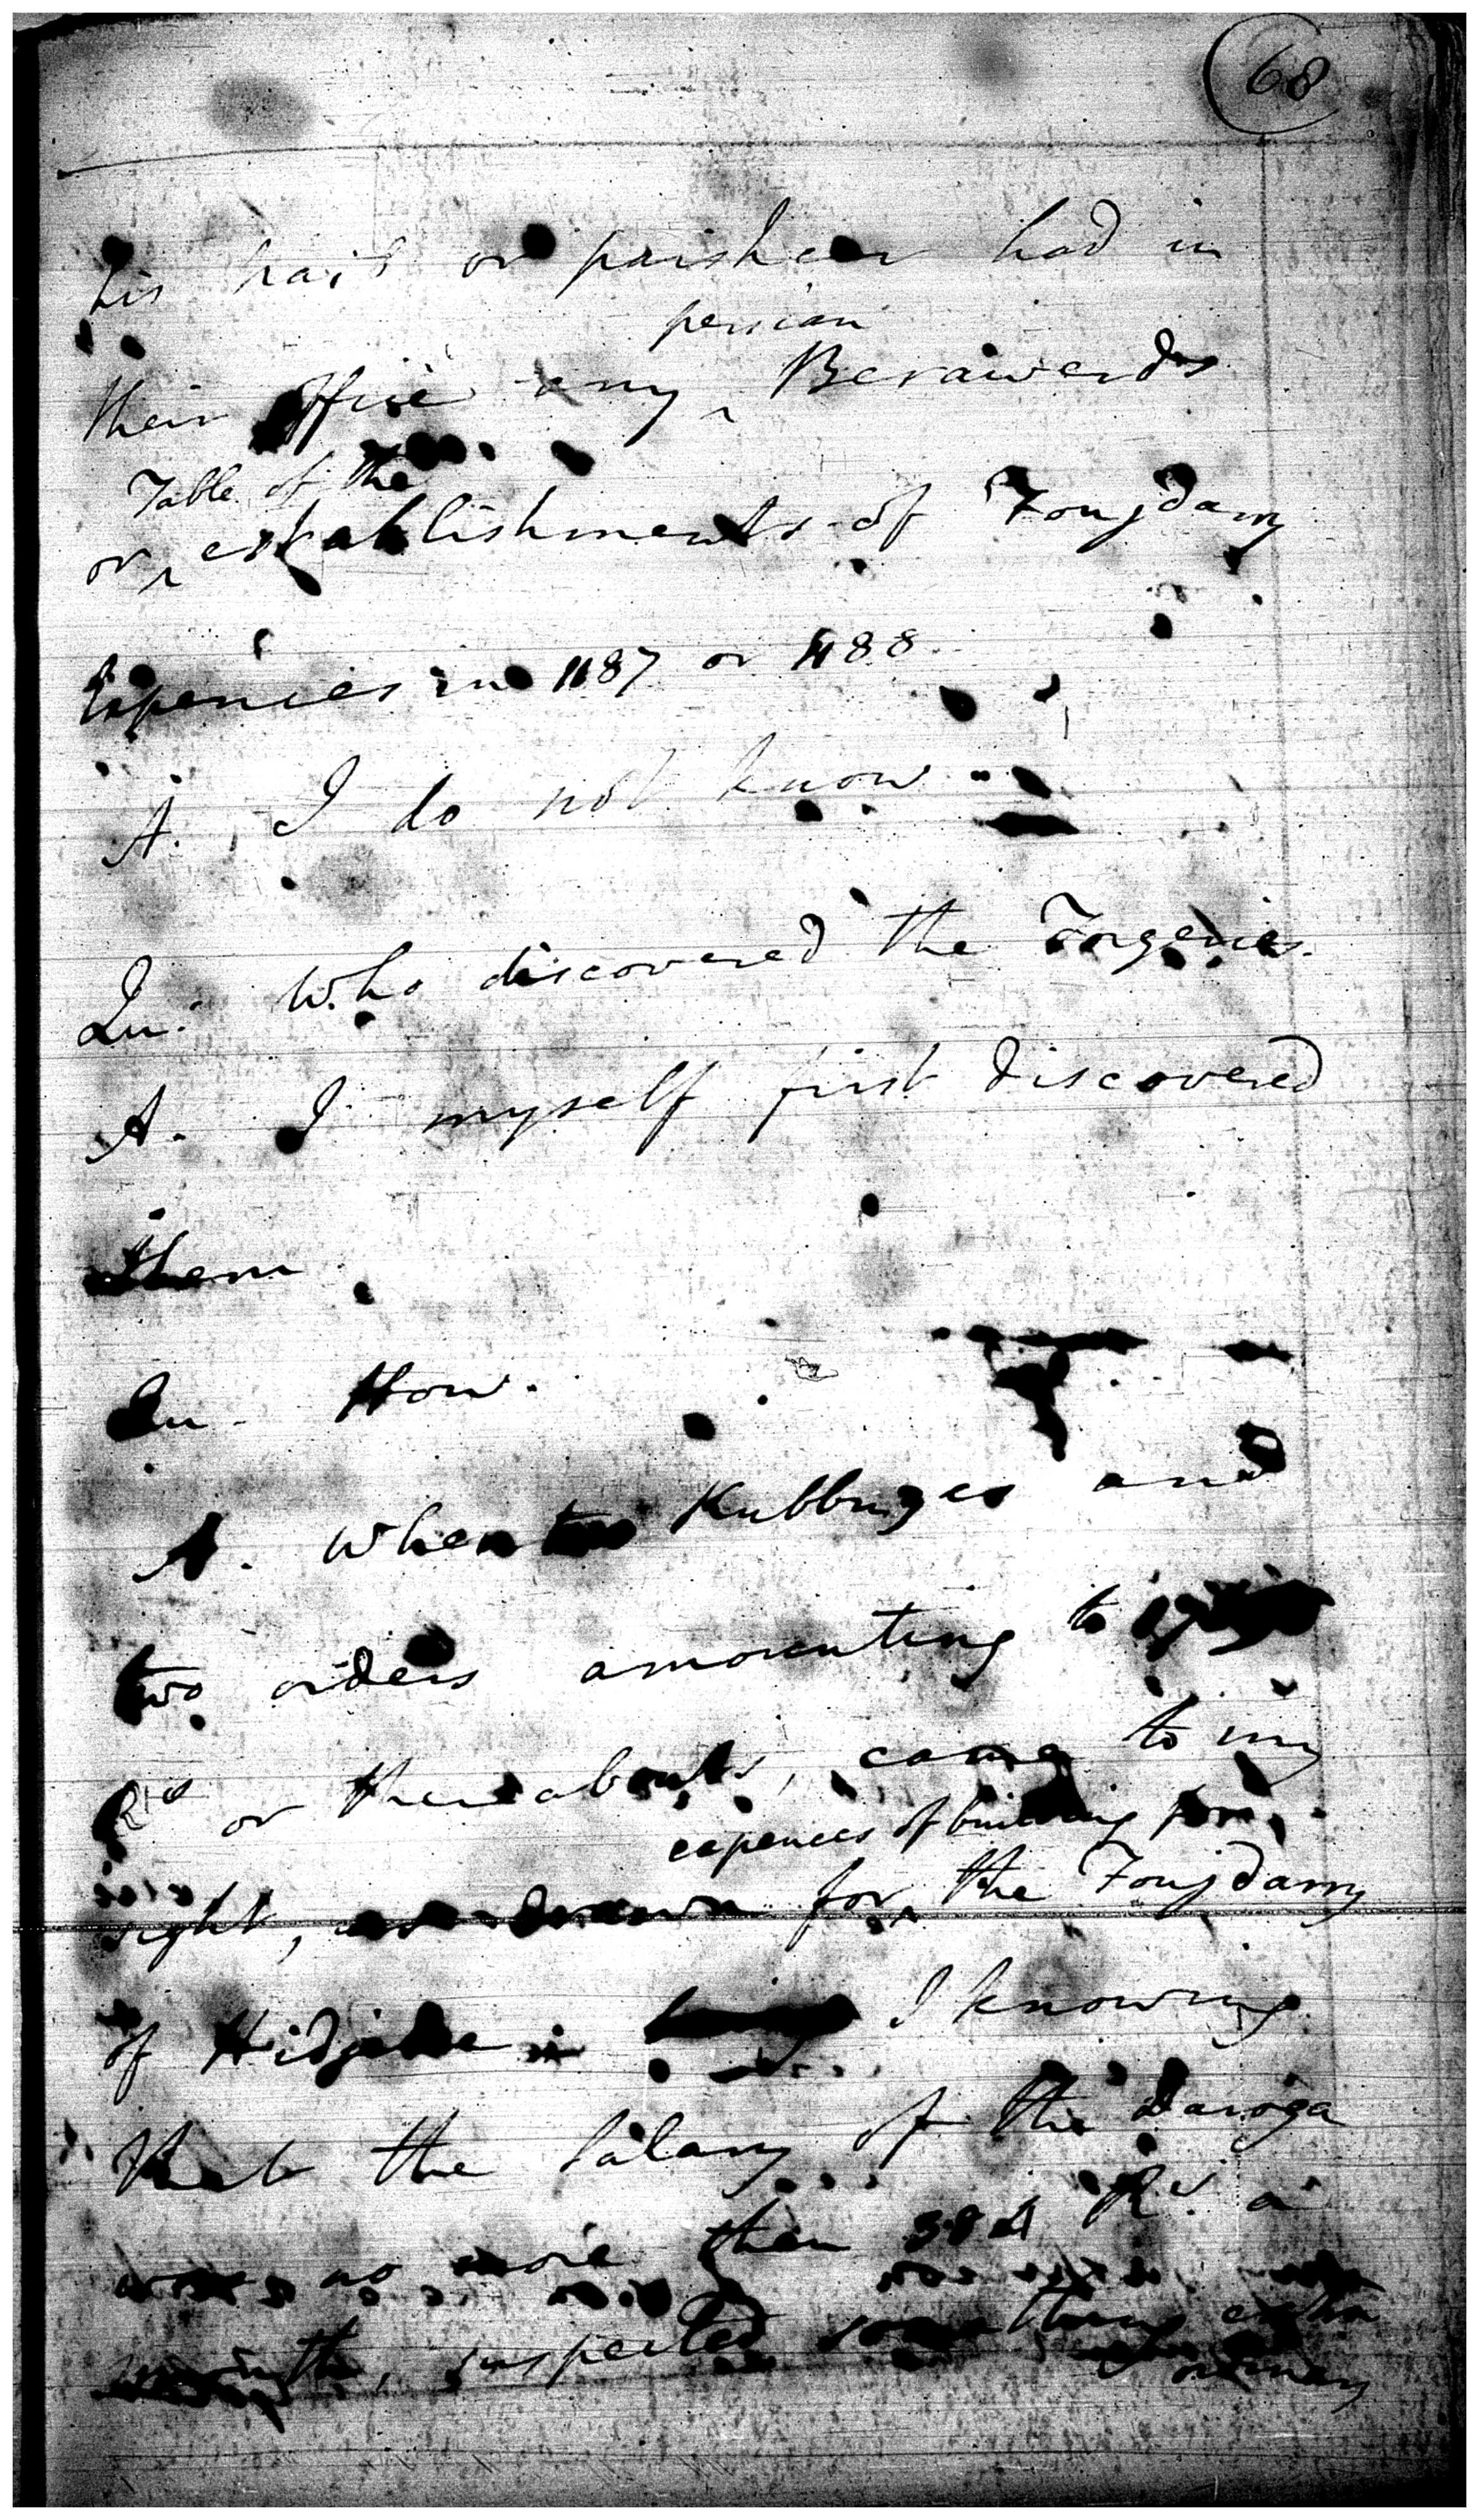 68
his naib or paishcar had in
persian
their office any ^ Berawerds
Table of the
or ^ establishments of Foujdarry
Expences in 1187 or 1188.
A. I do not know
Qu: Who discovered the Forgeries.
A. I myself first discovered
them
Qu. How.
A. When Kubbuzes and
two orders amounting to
Rs or thereabouts, came to my
expences of building for
sight, as drawn for ^ the Foujdarry
of Hidjelee I knowing
that the Salary of the Daroga
was no more than 384 Rs. a
month, suspected something extra
ordinary